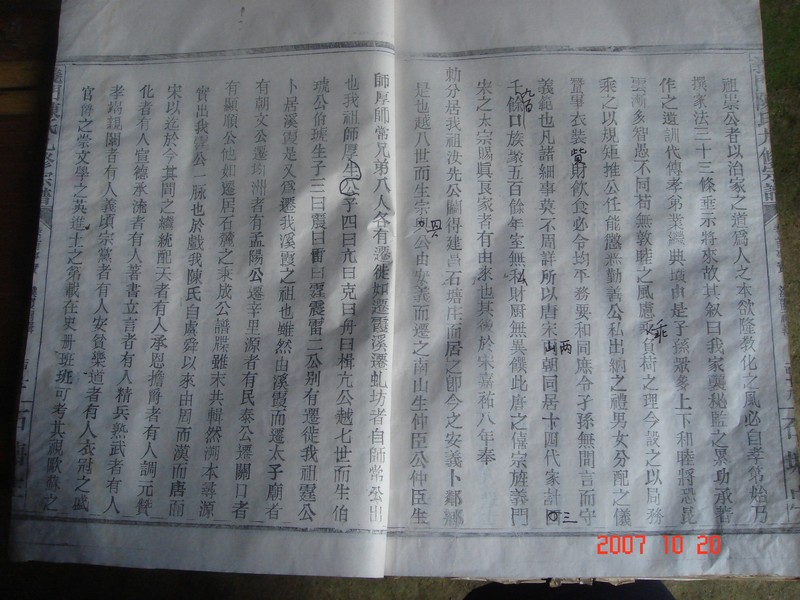 祖崇公者以治家之道為人之本欲隆教化之風必自孝弟始乃
撰家法三十三條垂示將來故其叙曰我家襲秘監之累功承著
作之遺訓代傳孝弟業繼典墳貞是子孫眾多上下和睦將恐昆
雲漸多智愚不同苟無敦睦之風慮乖負荷之理今設之以局務
乖之以規矩推公任能懲惡勸善公私出納之禮男女分配之儀
蠶事衣裝貲財飲食必令均平務要和同庶令子孫無間言而守
義範也凡諸細事莫不周詳所以唐宋兩朝同居十四代家計三
千九百餘口族聚五百餘年室無私財厨無異饌此唐之僖宗旌義門
宋之太宗賜真良家者有由來也其後於宋嘉祐八年奉
勅分居我祖汝先公鬮得建昌石塘庄而居之卽今之安義卜鄰鄉
是也越八世而生宗四公由安義而遷之南山生仲臣公仲臣生
師厚師常兄弟八人各有遷徙如遷霞溪遷虬坊者自師常公出
也我祖師厚公生子四曰亢曰克曰舟曰楫亢公越七世而生伯
琥公伯琥生子三曰震曰雷曰霆震雷二公別有遷徙我祖霆公
卜居溪霞是又為遷我溪霞之祖也雖然由溪霞而遷太子廟者
有朝文公遷均洲者有孟陽公遷辛里源者有民泰公遷關口者
有顯順公他如遷居石麓之秉成公譜牒雖未共輯然溯本尋源
實出我霆公一脉也於戲我陳氏自虞舜以來由周而漢而唐而
宋以迄於今其間之纘統配天者有人承恩擔爵者有人調元贊
化者有人宣德承流者有人著書立言者有人精兵熟武者有人
孝錫親闈者有人義頃宗黨者有人安貧樂道者有人衣冠之盛
官爵之崇文學之英進士之第載在史冊班班可考其視歐蘇之
2007 10 20